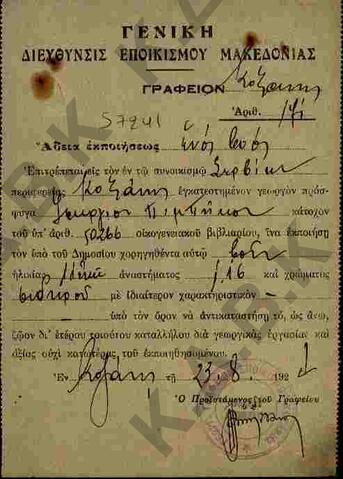 ΓΕΝΙΚΗ
ΔΙΕΥΘΥΝΣΙΣ ΕΠΟΙΚΙΣΜΟΥ ΜΑΚΕΔΟΝΙΑΣ
ΓΡΑΦΕΙΟΝ Κοζάνης
Ἀριθ.
57241
Ἄδεια ἐκποιήσεως ἑνὸς βοός
Ἐπιτρέπεται εἰς τὸν ἐν τῷ συνοικισμῷ Σερβίων
περιφερείας Κοζάνης ἐγκατεστημένον γεωργὸν πρόσ-
φυγα Γεώργιον κάτοχον
τοῦ ὑπ' ἀριθ. 50266 οἰκογενειακοῦ βιβλιαρίου, ἵνα ἐκποιήσῃ
τὸν ὑπὸ τοῦ Δημοσίου χορηγηθέντα αὐτῷ βοῦν
ἡλικίας ἀναστήματος 1,16 καὶ χρώματος
μὲ ἰδιαίτερον χαρακτηριστικὸν —
— ὑπὸ τὸν ὅρον νὰ ἀντικαταστήσῃ τό, ὡς ἄνω,
ζῶον δι' ἑτέρου τοιούτου καταλλήλου διὰ γεωργικὰς ἐργασίας καὶ
ἀξίας οὐχὶ κατωτέρας τοῦ ἐκποιηθησομένου.
Ἐν Κοζάνῃ τῇ 23.8. 192
Ὁ Προϊστάμενος τοῦ Γραφείου